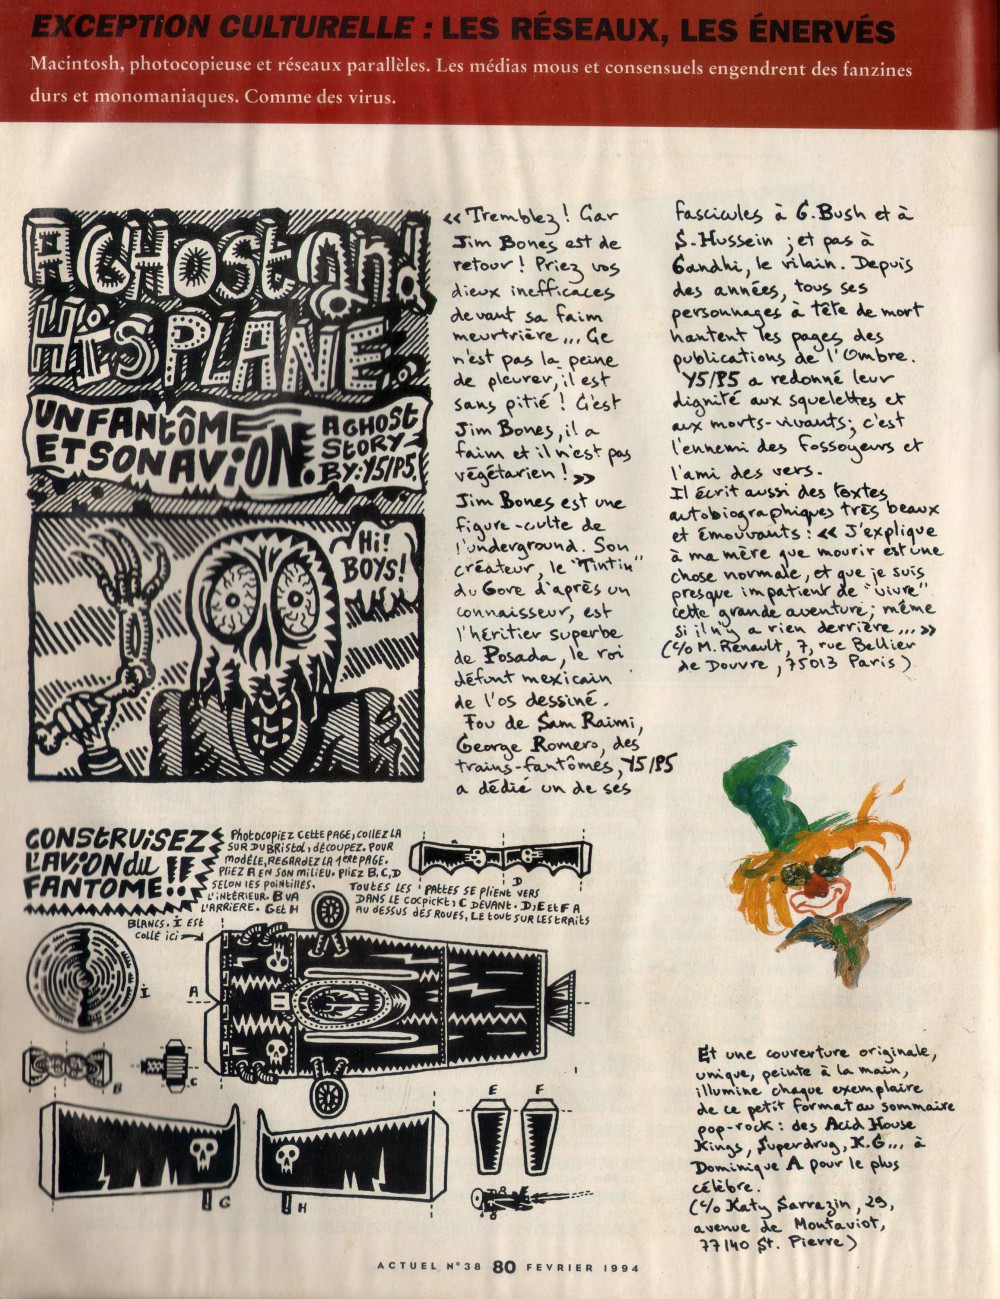 EXCEPTION CULTURELLE : LES RÉSEAUX, LES ÉNERVÉS
Macintosh, photocopieuse et réseaux parallèles. Les médias mous et consensuels engendrent des fanzines
durs et monomaniaques. Comme des virus.
A GHOST and
HiS PLANE.
UN FANTÔME
ET SON AViON.
A GHOST
STORY
BY: Y5/P5.
Hi!
BOYS!
« Tremblez ! Car
Jim Bones est de
retour ! Priez vos
dieux inefficaces
devant sa faim
meurtrière... Ce
n'est pas la peine
de pleurer, il est
sans pitié ! C'est
Jim Bones, il a
faim et il n'est pas
végétarien ! »
Jim Bones est une
figure-culte de
l'underground. Son
créateur, le "Tintin"
du Gore d'après un
connaisseur, est
l'héritier superbe
de Posada, le roi
défunt mexicain
de l'os dessiné.
Fou de Sam Raimi,
George Romero, des
trains-fantômes, Y5/P5
a dédié un de ses
fascicules à G. Bush et à
S. Hussein ; et pas à
Gandhi, le vilain. Depuis
des années, tous ses
personnages à tête de mort
hantent les pages des
publications de l'Ombre.
Y5/P5 a redonné leur
dignité aux squelettes et
aux morts-vivants ; c'est
l'ennemi des fossoyeurs et
l'ami des vers.
Il écrit aussi des textes
autobiographiques très beaux
et émouvants : « J'explique
à ma mère que mourir est une
chose normale, et que je suis
presque impatient de "vivre"
cette grande aventure ; même
si il n'y a rien derrière... »
(c/o M. Renault, 7, rue Bellier
de Douvre, 75013 Paris)
CONSTRUiSEZ
L'AViON du
FANTOME !!
PHOTOCOPiEZ CETTE PAGE, COLLEZ LA
SUR DU BRiSTOL, DÉCOUPEZ. POUR
MODÈLE, REGARDEZ LA 1ERE PAGE.
PLiEZ A EN SON MiLiEU. PLiEZ B, C, D
SELON LES POiNTiLLÉS.
TOUTES LES PATTES SE PLiENT VERS
L'iNTÉRiEUR. B VA
DANS LE COCPiCKT : C DEVANT. D, E ET F A
L'ARRiERE. G ET H
AU DESSUS DES ROUES, LE TOUT SUR LES TRAiTS
BLANCS. I EST
COLLÉ iCi
D
A
I
B
C
E
F
G
H
Et une couverture originale,
unique, peinte à la main,
illumine chaque exemplaire
de ce petit format au sommaire
pop-rock : des Acid House
Kings, Superdrug, K.G... à
Dominique A pour le plus
célèbre.
(c/o Katy Sarrazin, 29,
avenue de Montaviot,
77140 St. Pierre)
ACTUEL N°38 80 FEVRIER 1994